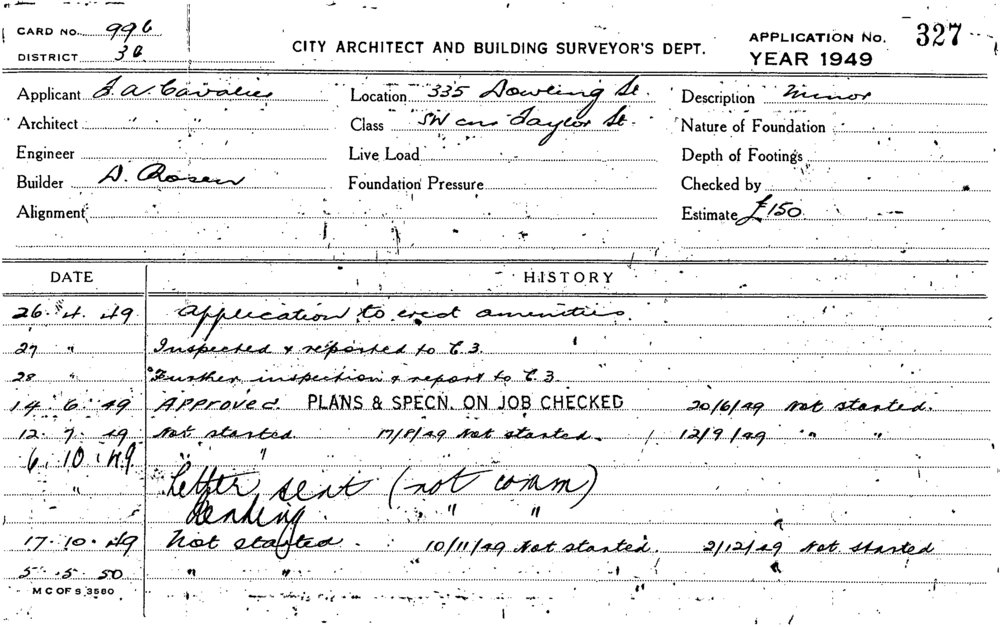 CARD No. 996
DISTRICT 36
CITY ARCHITECT AND BUILDING SURVEYOR'S DEPT.
APPLICATION No. 327
YEAR 1949
Applicant J. A. Cavalier Location 335 Dowling St. Description Minor
Architect " " Class SW cnr Taylor St. Nature of Foundation
Engineer Live Load Depth of Footings
Builder D. Rosen Foundation Pressure Checked by
Alignment Estimate £150
DATE HISTORY
26 . 4 . 49 Application to erect amenities.
27 " Inspected & reported to C.3.
28 " Further inspection & report to C.3.
14 . 6 . 49 Approved. PLANS & SPECN. ON JOB CHECKED 20/6/49 Not started.
12 . 7 . 49 Not started. 17/8/49 Not started. 12/9/49 " "
6 . 10 . 49 " "
" Letter sent (not comm)
Pending. " "
17 . 10 . 49 Not started. 10/11/49 Not started. 2/12/49 Not started
5 . 5 . 50 " "
M C OF S 3580